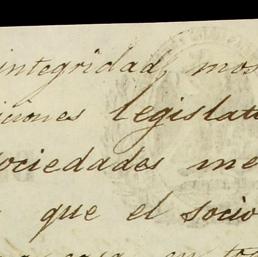 integridad, mos
iciones legislat
ociedades me
que el socio